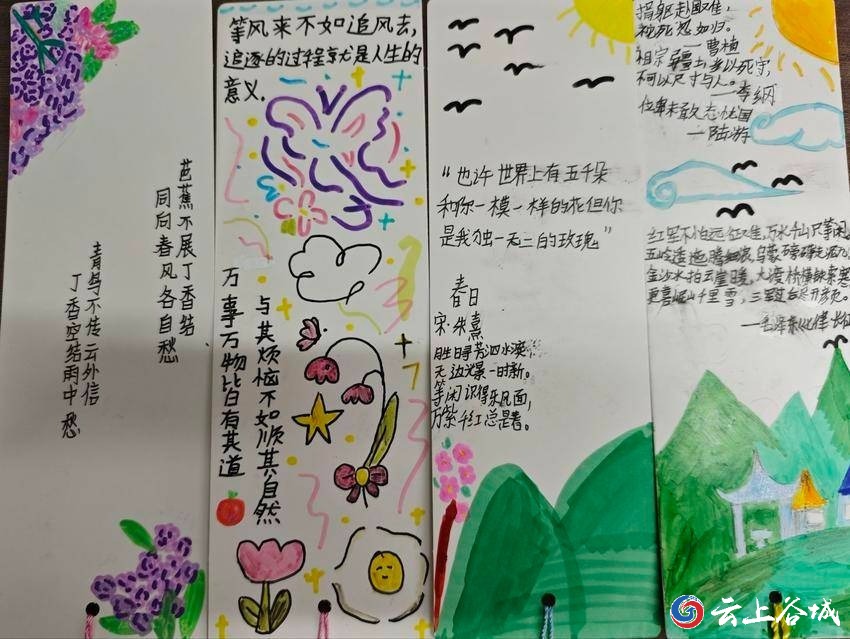 芭蕉不展丁香结
同向春风各自愁
青鸟不传云外信
丁香空结雨中愁
等风来不如追风去,
追逐的过程就是人生的
意义.
万事万物皆有其道
与其烦恼不如顺其自然
“也许世界上有五千朵
和你一模一样的花但你
是我独一无二的玫瑰”
春日
宋·朱熹
胜日寻芳泗水滨
无边光景一时新。
等闲识得东风面,
万紫千红总是春。
捐躯赴国难,
视死忽如归。
——曹植
祖宗疆土,当以死守,
不可以尺寸与人。
——李纲
位卑未敢忘忧国
——陆游
红军不怕远征难,万水千山只等闲。
五岭逶迤腾细浪,乌蒙磅礴走泥丸
金沙水拍云崖暖,大渡桥横铁索寒
更喜岷山千里雪,三军过后尽开颜。
——毛泽东《七律长征
云上谷城